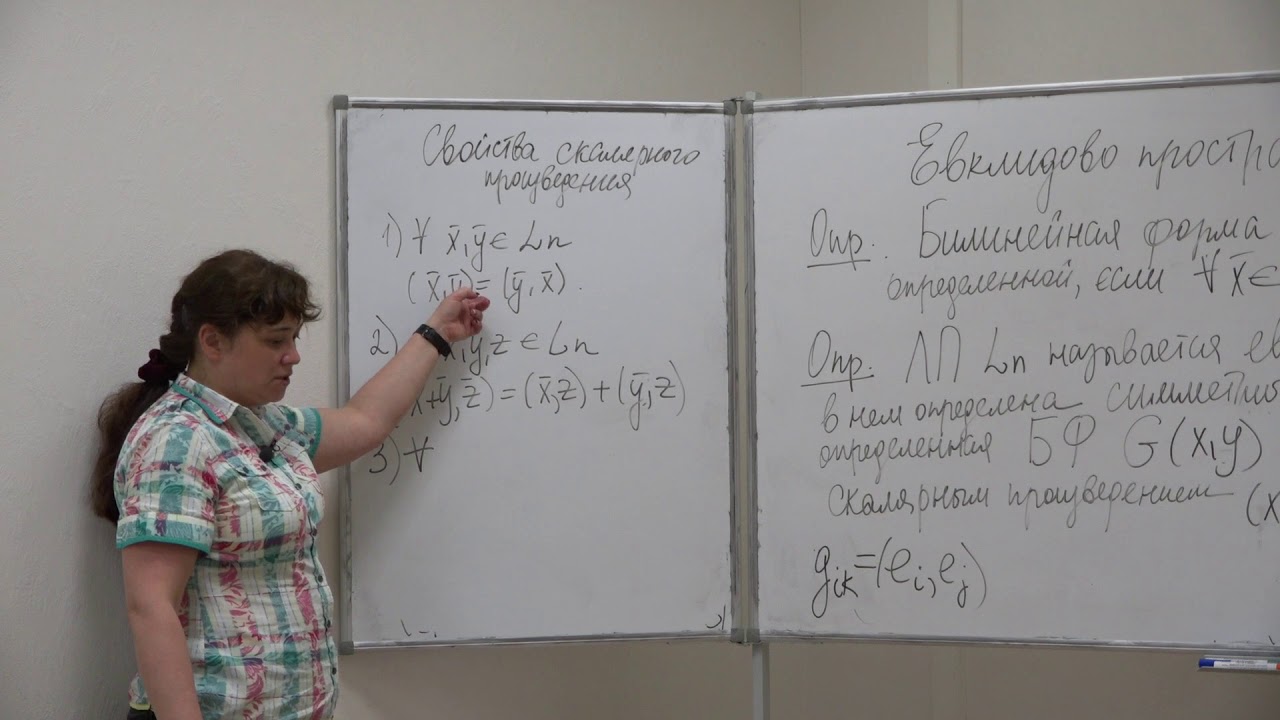 Свойства скалярного
произведения
1) ∀ x̄, ȳ ∈ Ln
(x̄, ȳ) = (ȳ, x̄).
2) x, y, z ∈ Ln
x̄+ȳ, z̄) = (x̄, z) + (ȳ, z)
3) ∀
Евклидово простра
Опр. Билинейная форма
определенной, если ∀ x̄ ∈
Опр. ЛП Ln называется ев
в нем определена симметрич
определенная БФ G(x, y)
скалярным произведением (x
gik = (ei, ej)